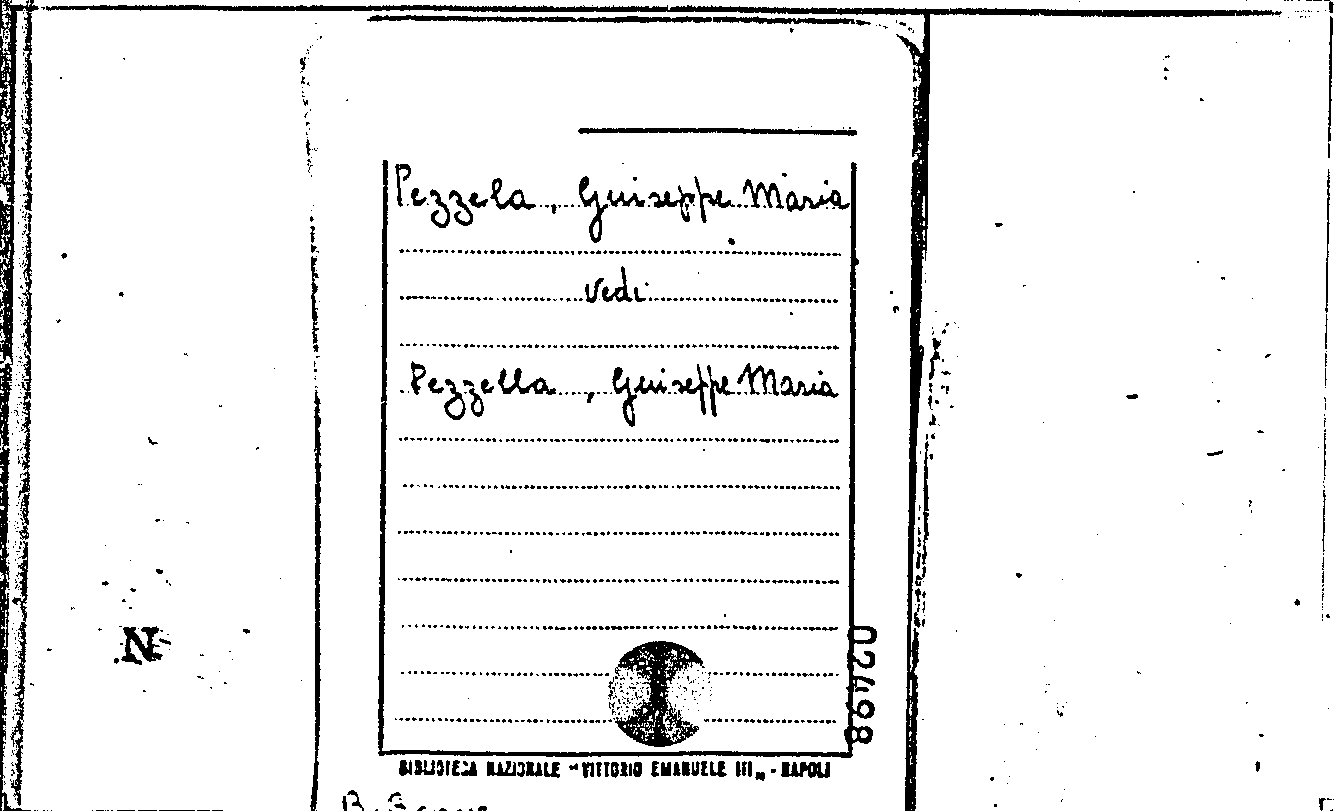 Pezzela, Guiseppe Maria
vedi
Pezzella, Guiseppe Maria
N
02498
BIBLIOTECA NAZIONALE "VITTORIO EMANUELE III" - NAPOLI